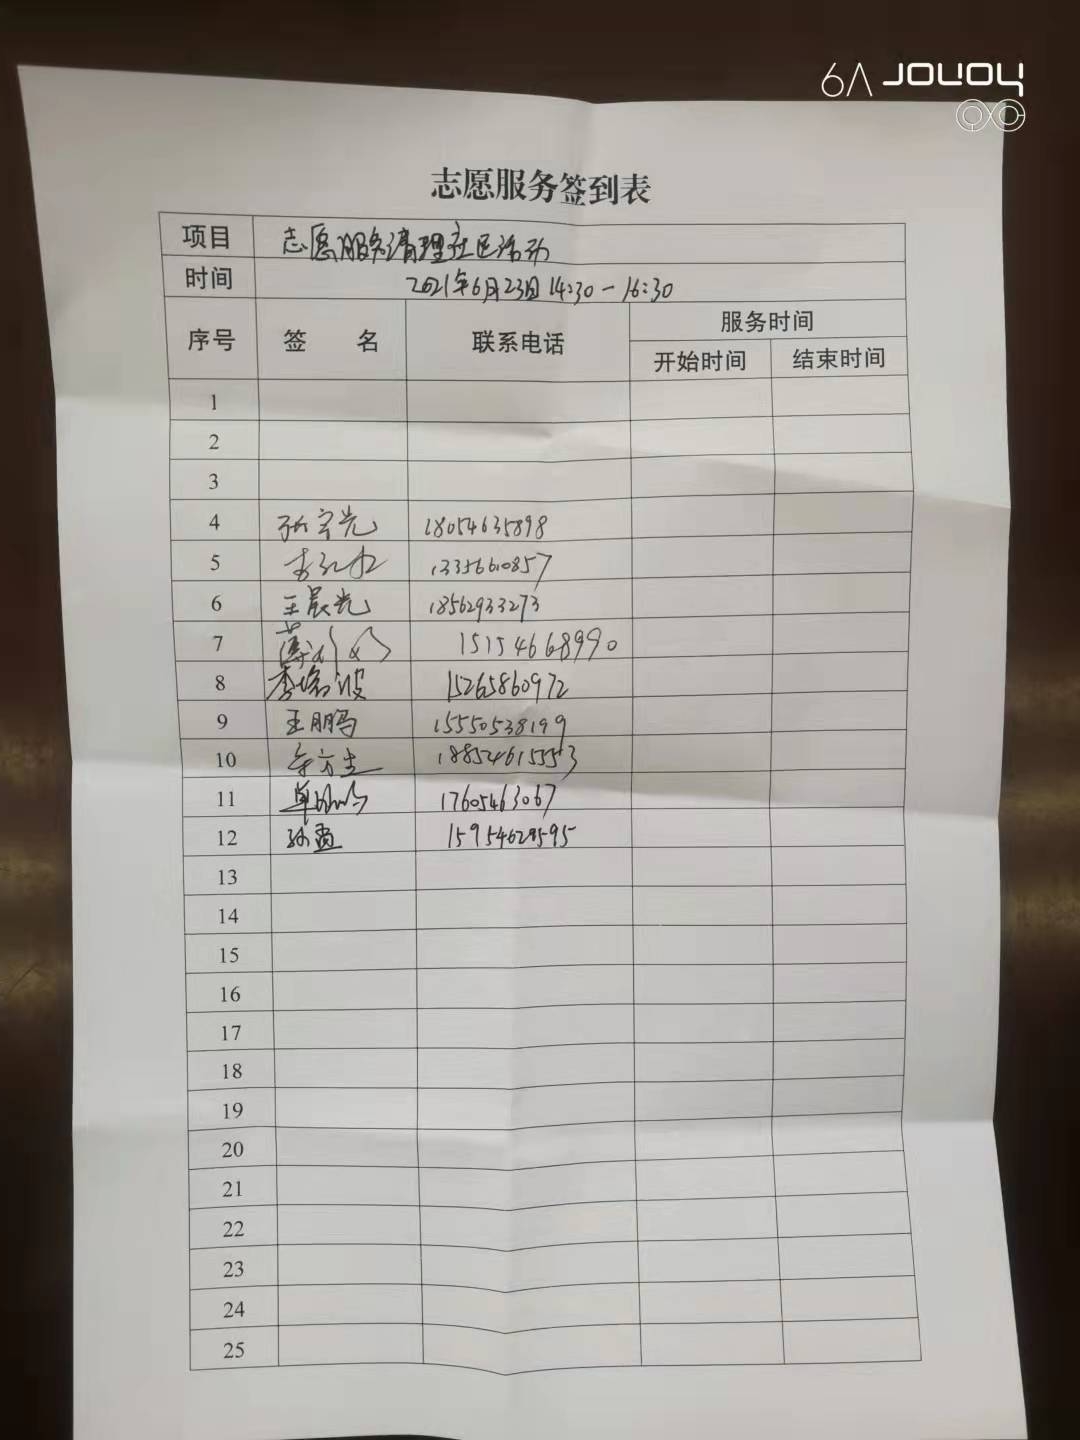 6A honor
志愿服务签到表
项目 志愿服务清理社区活动
时间 2021年6月23日14:30-16:30
序号 签 名 联系电话 服务时间
开始时间 结束时间
1
2
3
4 18054635898
5 13356610857
6 王晨光 18562933273
7 15154668990
8 李瑞波 15265860972
9 王朋鸟 15550538199
10 18854615553
11 17605463067
12 15954629595
13
14
15
16
17
18
19
20
21
22
23
24
25